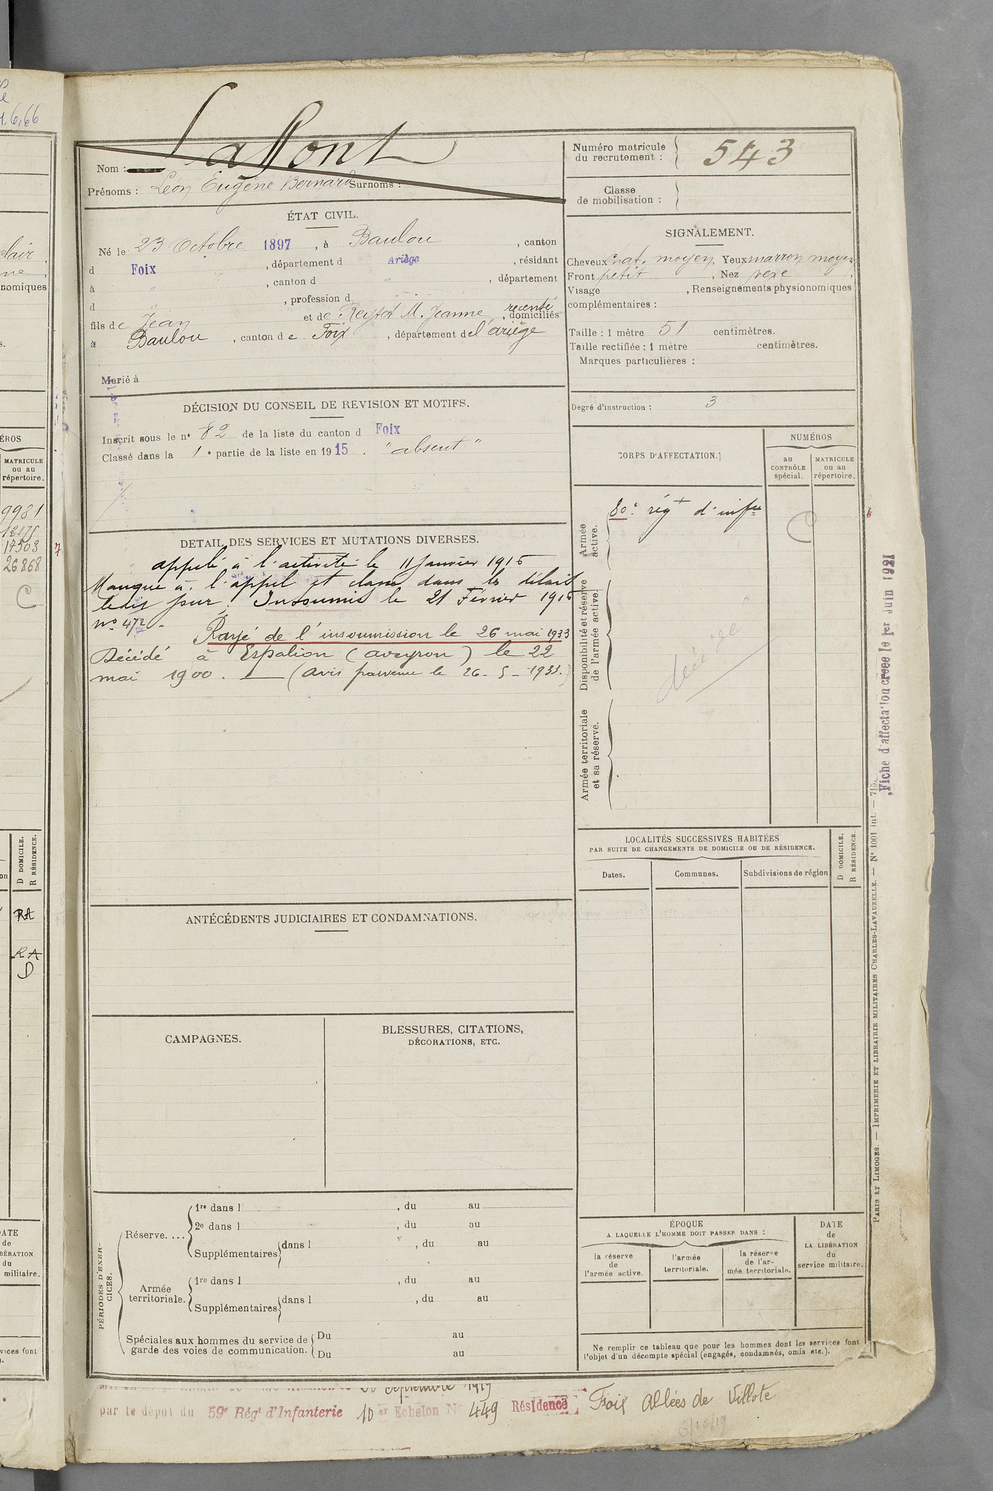 Lafont
Nom :
Prénoms : Léon Eugène Bernard Surnoms :
Numéro matricule
du recrutement : 543
Classe
de mobilisation :
ÉTAT CIVIL.
Né le 23 Octobre 1897, à Baulou, canton
d Foix, département d Ariège, résidant
à, canton d, département
d, profession d
fils de Jean et de M. Jeanne, recensé domiciliés
à Baulou, canton de Foix, département de l'ariège
Marié à
SIGNALEMENT.
Cheveux chat. moyen, Yeux marron moyen
Front petit, Nez
Visage, Renseignements physionomiques
complémentaires :
Taille : 1 mètre 51 centimètres.
Taille rectifiée : 1 mètre centimètres.
Marques particulières :
Degré d'instruction : 3
DÉCISION DU CONSEIL DE RÉVISION ET MOTIFS.
Inscrit sous le n° 82 de la liste du canton d Foix
Classé dans la 1e partie de la liste en 1915. "absent"
DÉTAIL DES SERVICES ET MUTATIONS DIVERSES.
appelé à l'activité le 11 Janvier 1916
Manque à l'appel et classé dans les délais
ledit jour, Insoumis le 21 Février 1916
n° 472.
Rayé de l'insoumission le 26 mai 1933
Décédé à Espalion (aveyron) le 22
mai 1900. (Avis parvenu le 26-5-1933.)
CORPS D'AFFECTATION.
NUMÉROS
au
CONTRÔLE
spécial.
MATRICULE
ou au
répertoire.
Armée
active.
80e régt d'infie
C
Disponibilité et réserve
de l'armée active.
décédé
Armée territoriale
et sa réserve.
Fiche d'affectation créée le 1er Juin 1921
LOCALITÉS SUCCESSIVES HABITÉES
PAR SUITE DE CHANGEMENTS DE DOMICILE OU DE RÉSIDENCE.
Dates.
Communes.
Subdivisions de région
D DOMICILE.
R RÉSIDENCE.
ANTÉCÉDENTS JUDICIAIRES ET CONDAMNATIONS.
CAMPAGNES.
BLESSURES, CITATIONS,
DÉCORATIONS, ETC.
PÉRIODES D'EXERCICES.
Réserve....
1re dans l, du au
2e dans l, du au
Supplémentaires dans l, du au
Armée
territoriale.
1re dans l, du au
Supplémentaires dans l, du au
Spéciales aux hommes du service de
garde des voies de communication.
Du au
Du au
ÉPOQUE
A LAQUELLE L'HOMME DOIT PASSER DANS :
la réserve
de
l'armée active.
l'armée
territoriale.
la réserve
de l'armée territoriale.
DATE
de
LA LIBÉRATION
du
service militaire.
Ne remplir ce tableau que pour les hommes dont les services font
l'objet d'un décompte spécial (engagés, condamnés, omis etc.).
PARIS ET LIMOGES. — IMPRIMERIE ET LIBRAIRIE MILITAIRES CHARLES-LAVAUZELLE. — N° 1001 int. — 715.
Septembre 1919
par le dépôt du 59e Régt d'Infanterie 10 Echelon N° 449 Résidence Foix Allées de Villote